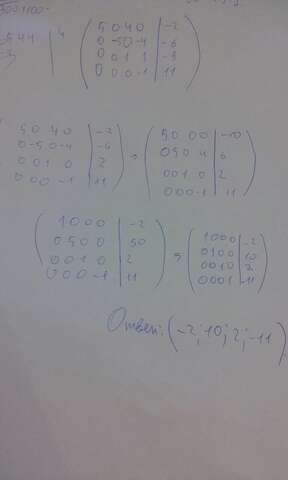 5 0 4 0 | -2
0 -5 0 -4 | -6
0 0 1 1
0 0 0 -1 | 11
5 0 4 0 | -2
0 -5 0 -4 | -6
0 0 1 0 | 2
0 0 0 -1 | 11
5 0 0 0 | -10
0 5 0 4 | 6
0 0 1 0 | 2
0 0 0 -1 | 11
1 0 0 0 | -2
0 5 0 0 | 50
0 0 1 0 | 2
0 0 0 -1 | 11
1 0 0 0 | -2
0 1 0 0 | 10
0 0 1 0 | 2
0 0 0 1 | -11
Ответ: (-2; 10; 2; -11)